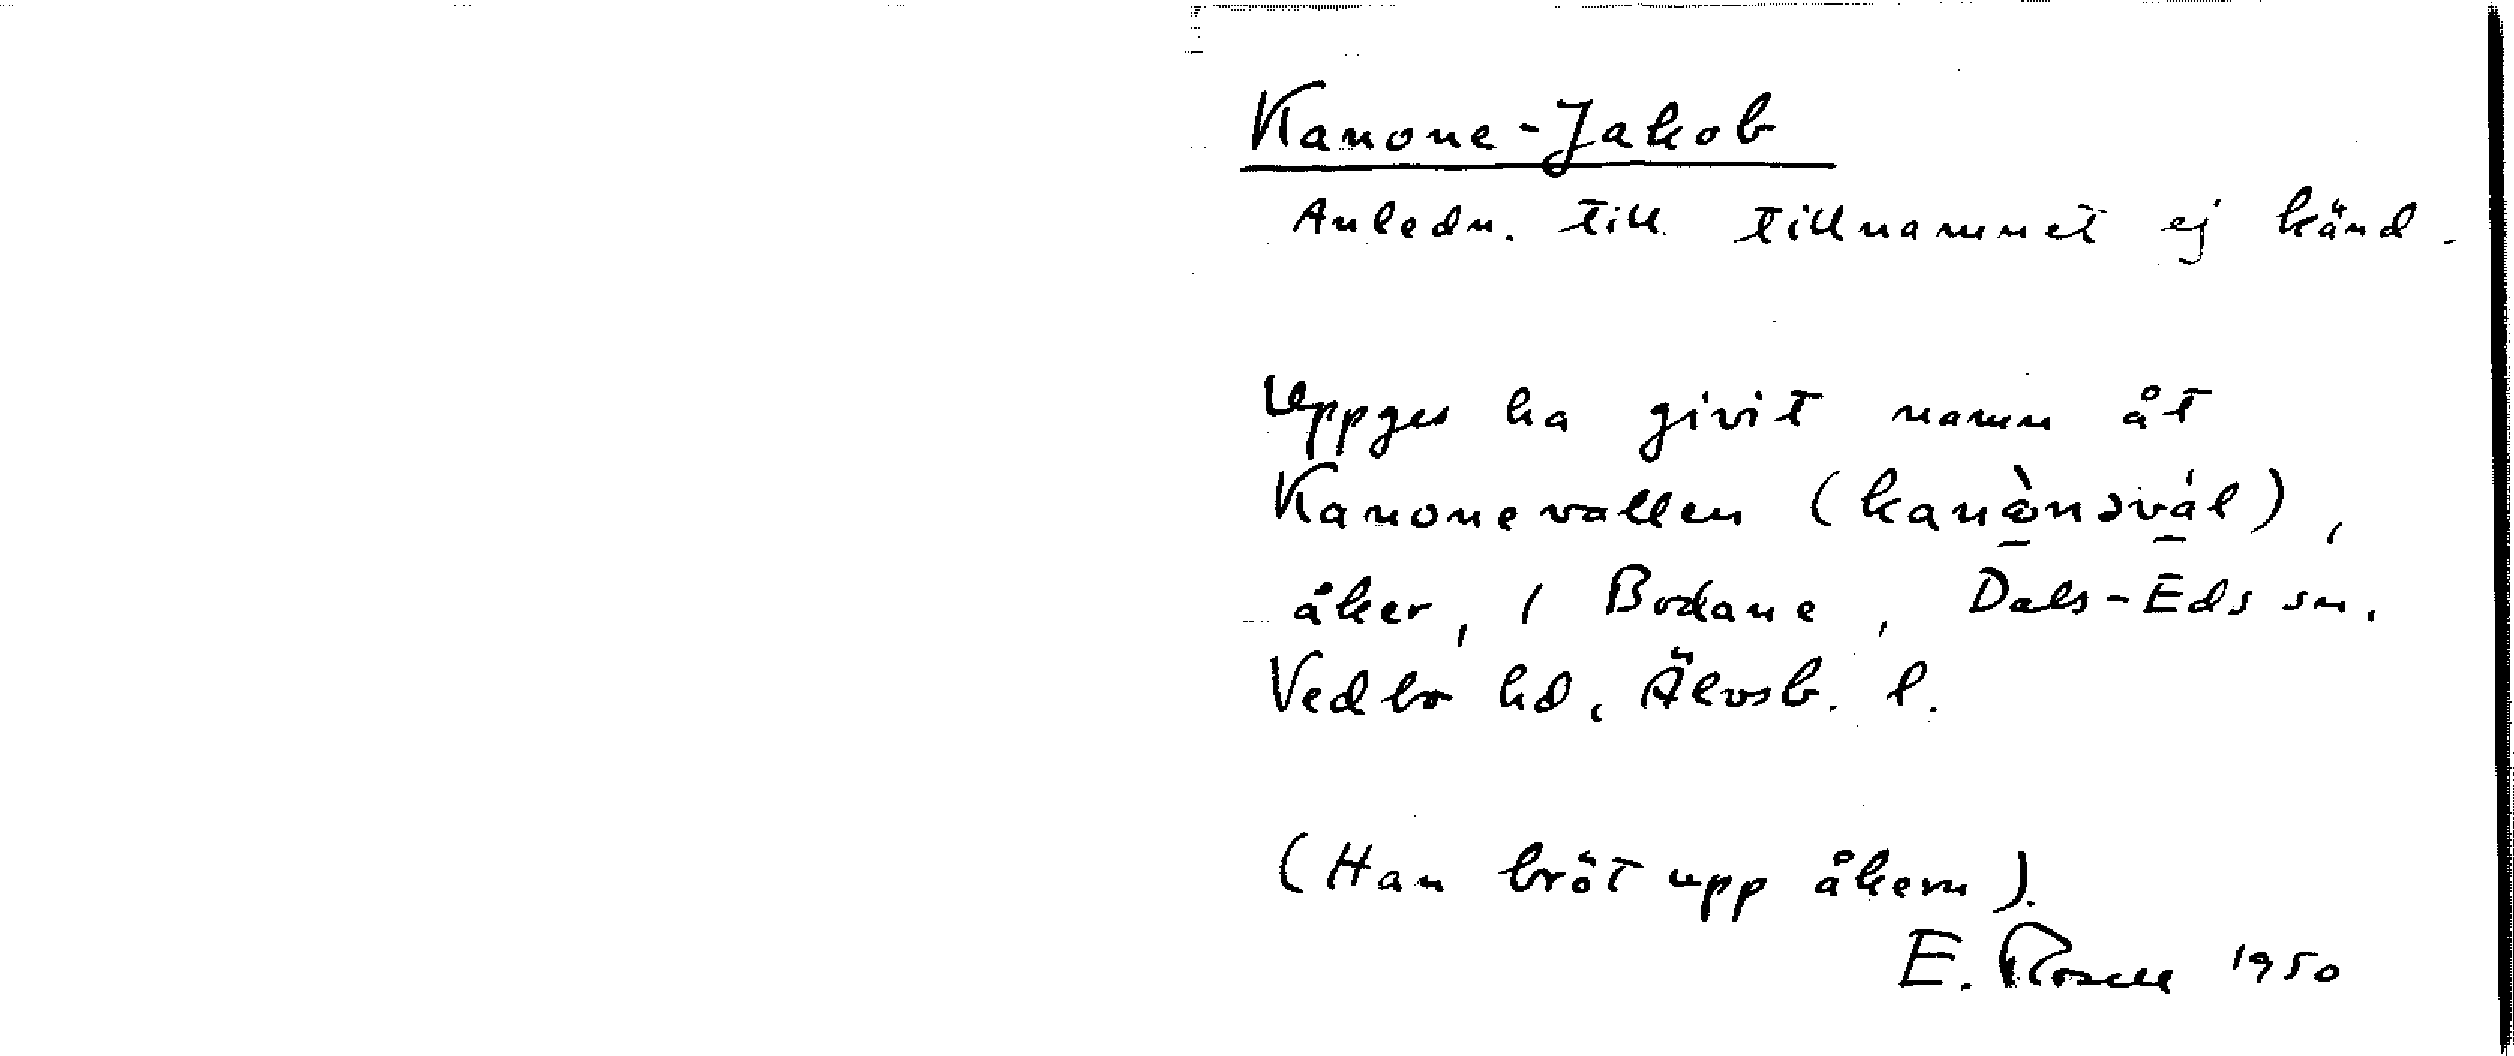 Kanone-Jakob
Anledn. till tillnamnet ej känd.
Uppges ha givit namn åt
Kanonevallen (kanɷ̀nəvál),
åker, 1 Bodane, Dals-Eds sn.
Vedbo hd, Älvsb. l.
(Han bröt upp åkern).
E. Rosell 1950